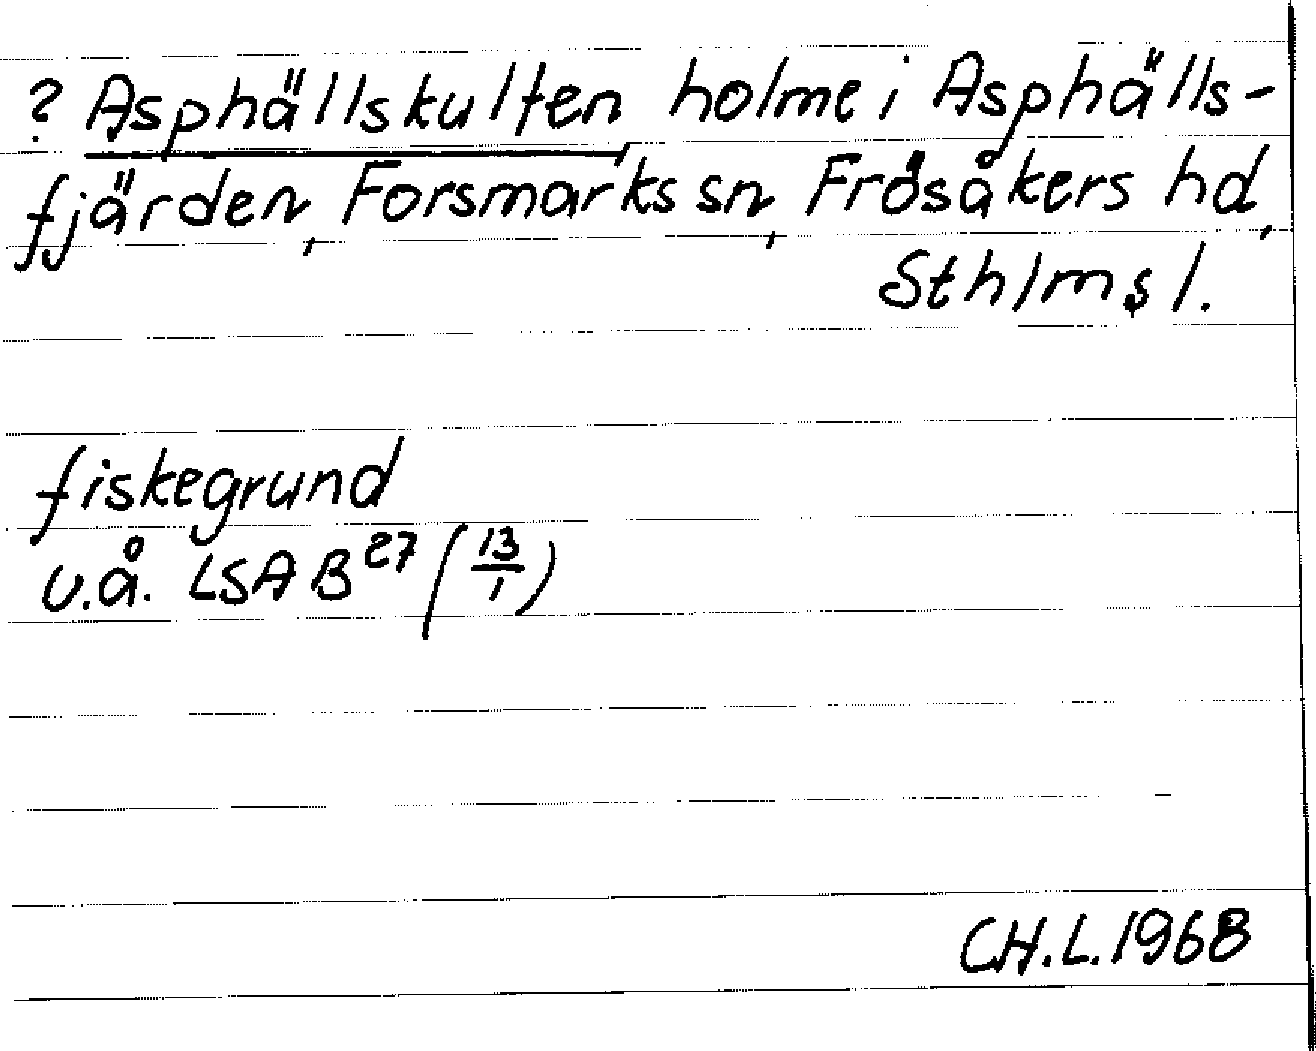 ? Asphällskulten, holme i Asphälls-
fjärden, Forsmarks sn, Frösåkers hd,
Sthlms l.
fiskegrund
u.å. LSA B²⁷ (13/1)
CH.L.1968